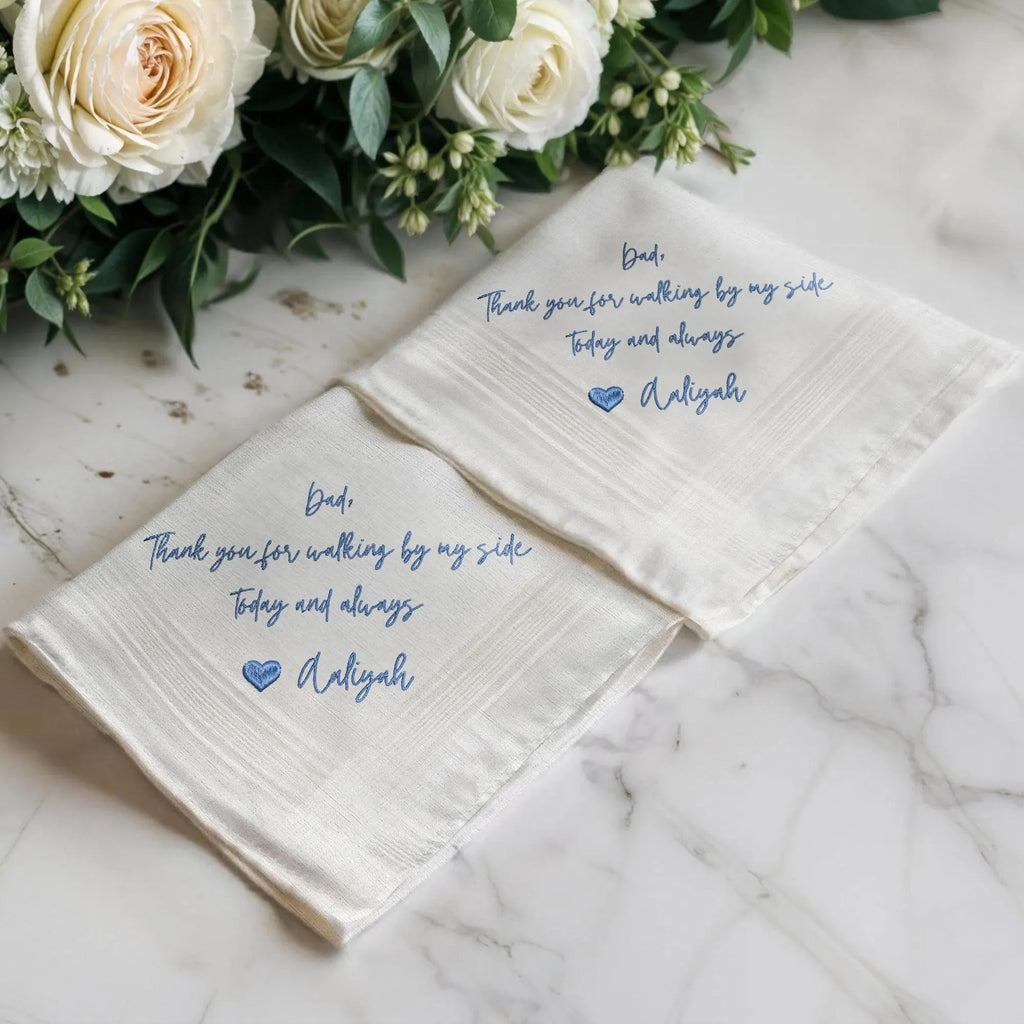 Dad,
Thank you for walking by my side
Today and always
Aaliyah
Dad,
Thank you for walking by my side
Today and always
Aaliyah